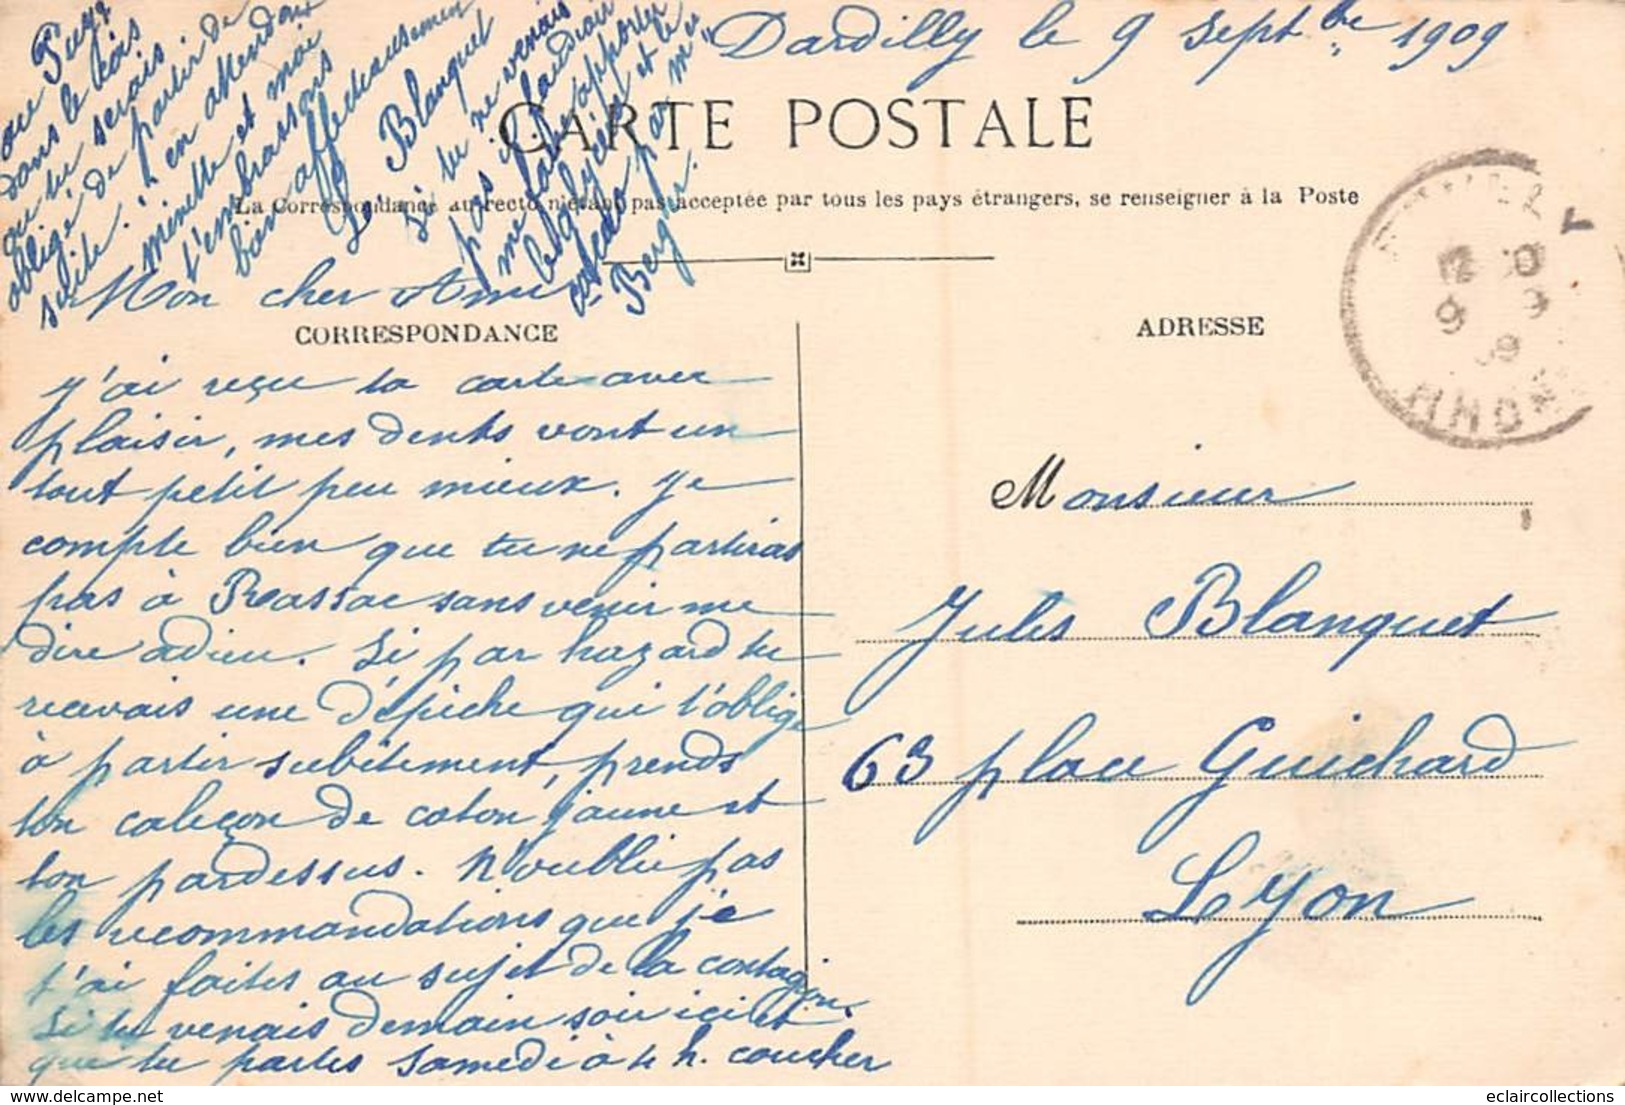 Dardilly le 9 Septbre 1909
CARTE POSTALE
La Correspondance au recto n'étant pas acceptée par tous les pays étrangers, se renseigner à la Poste
Mon cher Ami
CORRESPONDANCE
J'ai reçu ta carte avec
plaisir, mes dents vont un
tout petit peu mieux. Je
compte bien que tu ne partiras
pas à Reassac sans venir me
dire adieu. Si par hazard tu
recevais une dépêche qui t'oblige
à partir subitement, prends
ton caleçon de coton jaune et
ton pardessus. N'oublie pas
les recommandations que je
t'ai faites au sujet de la contagion.
Si tu venais demain soir ici et
que tu partes samedi à 4 h. coucher
au Puy
dans le cas
où tu serais
obligé de partir de
suite. en attendant
minette et moi
t'embrassons
bien affectueusement
J. Blanquet
Si tu ne venais
pas il faudrait
me faire apporter
la glycérine et le
par Me
Berger.
ADRESSE
RHONE
Monsieur
Jules Blanquet
63 place Guichard
Lyon
eclaircollections@delcampe.net